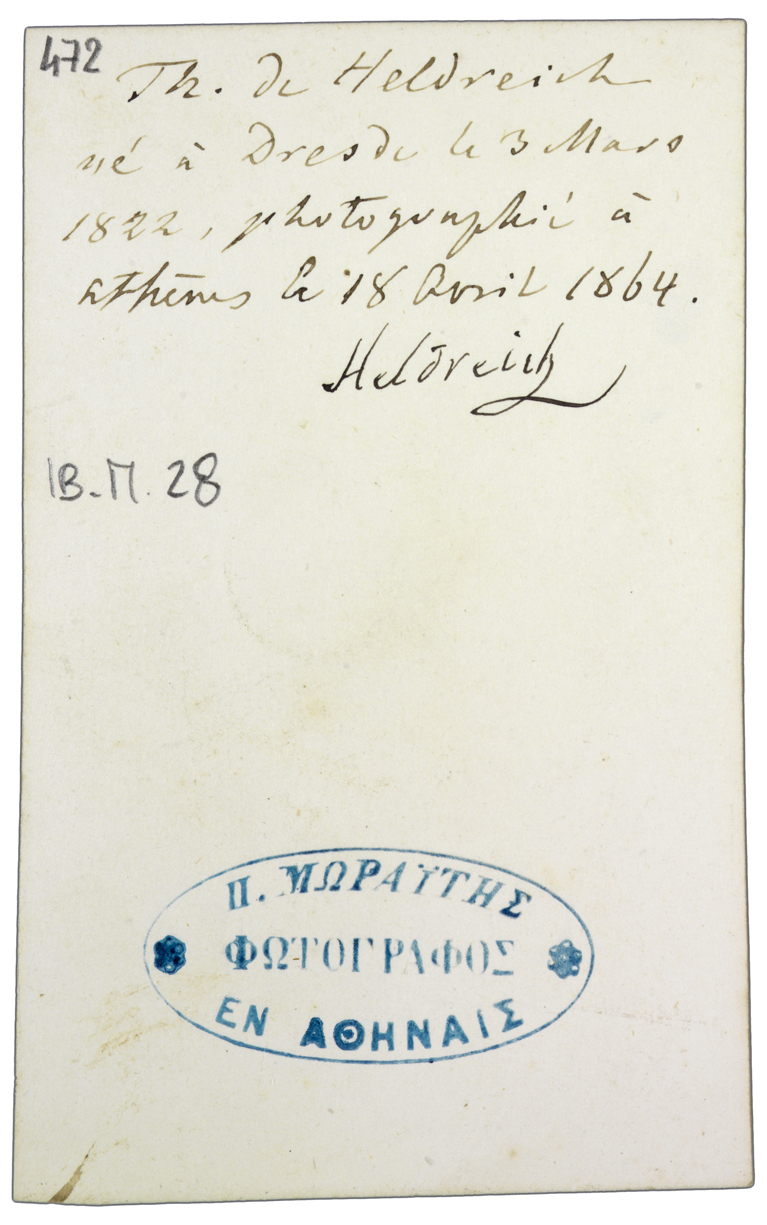 472
Th. de Heldreich
né à Dresde le 3 Mars
1822, photographié à
athènes le 18 Avril 1864.
Heldreich
B.Π. 28
Π. ΜΩΡΑΪΤΗΣ
ΦΩΤΟΓΡΑΦΟΣ
ΕΝ ΑΘΗΝΑΙΣ